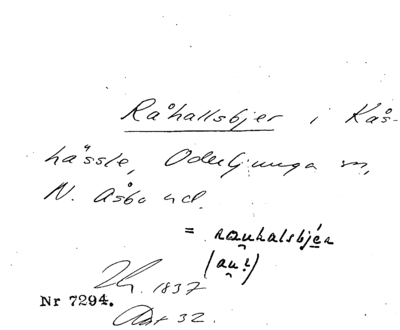 Råhallsbjer i Kås-
hässle, Oderljunga sn,
N. Åsbo hd.
= rauhalsbjér
(au!)
1837
Nr 7294.
32.